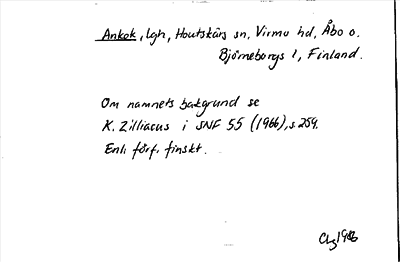 Ankok, lgh, Houtskärs sn, Virmo hd, Åbo o.
Björneborgs l, Finland.
Om namnets bakgrund se
K. Zilliacus i SNF 55 (1966), s. 259.
Enl. förf. finskt.